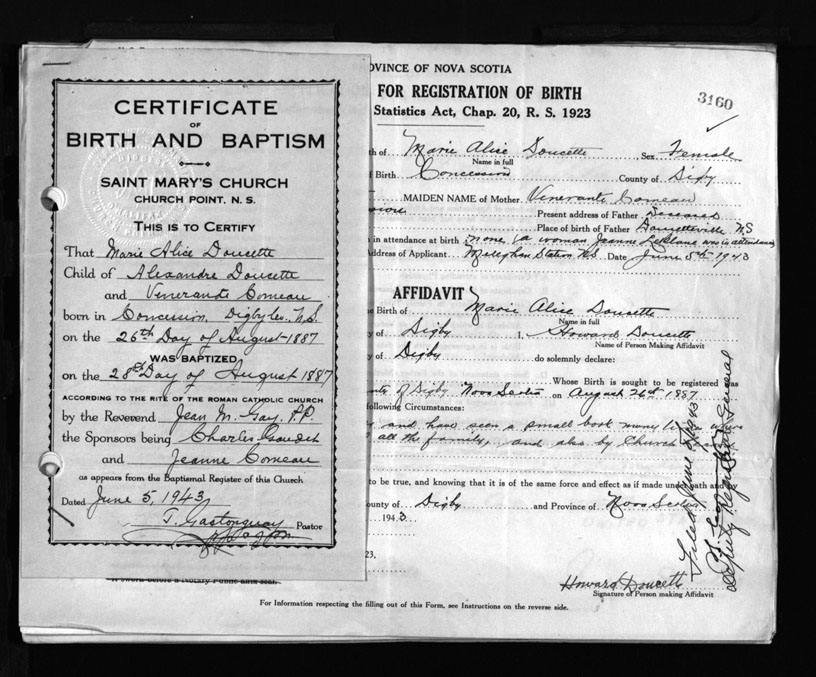 CERTIFICATE
OF
BIRTH AND BAPTISM
SAINT MARY'S CHURCH
CHURCH POINT, N. S.
THIS IS TO CERTIFY
That Marie Alice Doucette
Child of Alexandre Doucette
and Venerante Comeau
born in Concession, Digby Co. N.S.
on the 26th Day of August 1887
WAS BAPTIZED
on the 28th Day of August 1887
ACCORDING TO THE RITE OF THE ROMAN CATHOLIC CHURCH
by the Reverend Jean M. Gay, P.P.
the Sponsors being Charles Gaudet
and Jeanne Comeau
as appears from the Baptismal Register of this Church
Dated June 5, 1943
Pastor
OVINCE OF NOVA SCOTIA
FOR REGISTRATION OF BIRTH
Statistics Act, Chap. 20, R. S. 1923
3160
th of Marie Alice Doucette Sex Female
Name in full
f Birth Concession County of Digby
MAIDEN NAME of Mother Venerante Comeau
Present address of Father Deceased
Place of birth of Father Doucetteville N.S
in attendance at birth none (a woman Jeanne LeBlanc was in attendance
Address of Applicant Meteghan Station N.S. Date June 5th 1943
AFFIDAVIT
e Birth of Marie Alice Doucette
Name in full
y of Digby I, Howard Doucette
Name of Person Making Affidavit
y of Digby do solemnly declare:
Whose Birth is sought to be registered was
nty of Digby Nova Scotia on August 26th 1887
following Circumstances:
and have seen a small book
all the family, and also by Church
to be true, and knowing that it is of the same force and effect as if made under oath and
ounty of Digby and Province of Nova Scotia
1943
23,
Howard Doucette
Signature of Person making Affidavit
For Information respecting the filling out of this Form, see Instructions on the reverse side.
Filed June
Deputy Registrar General